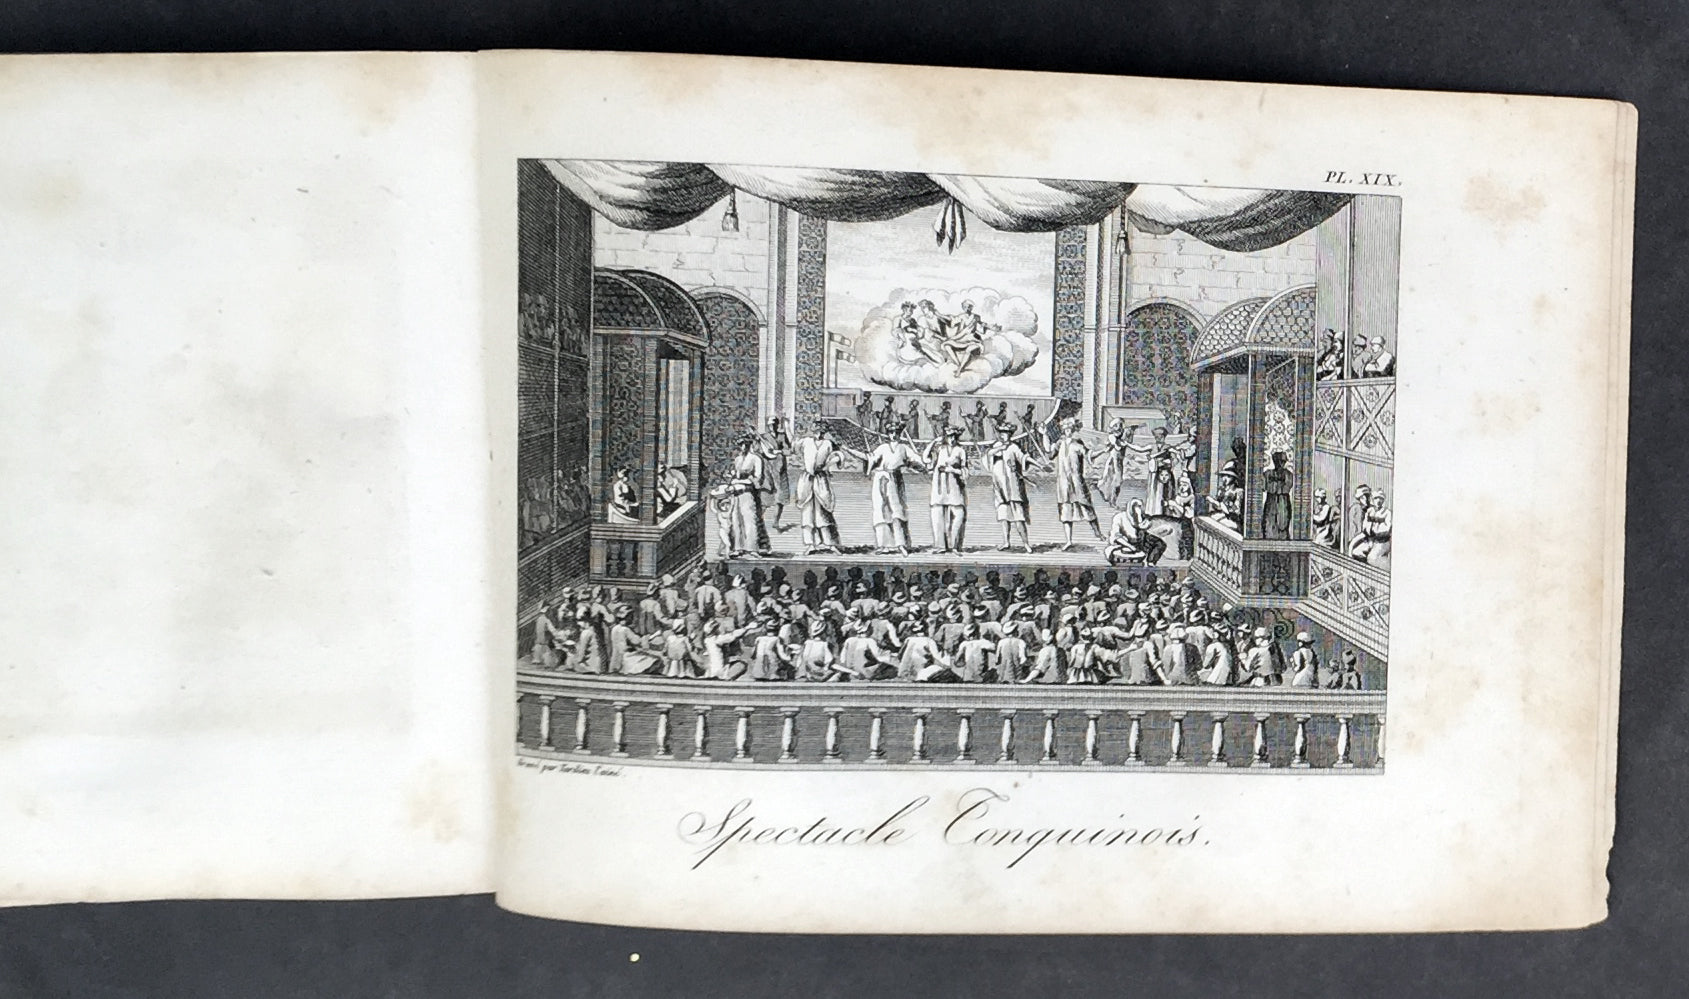 PL. XIX.
Gravé par Tardieu l'ainé.
Spectacle Tonquinois.